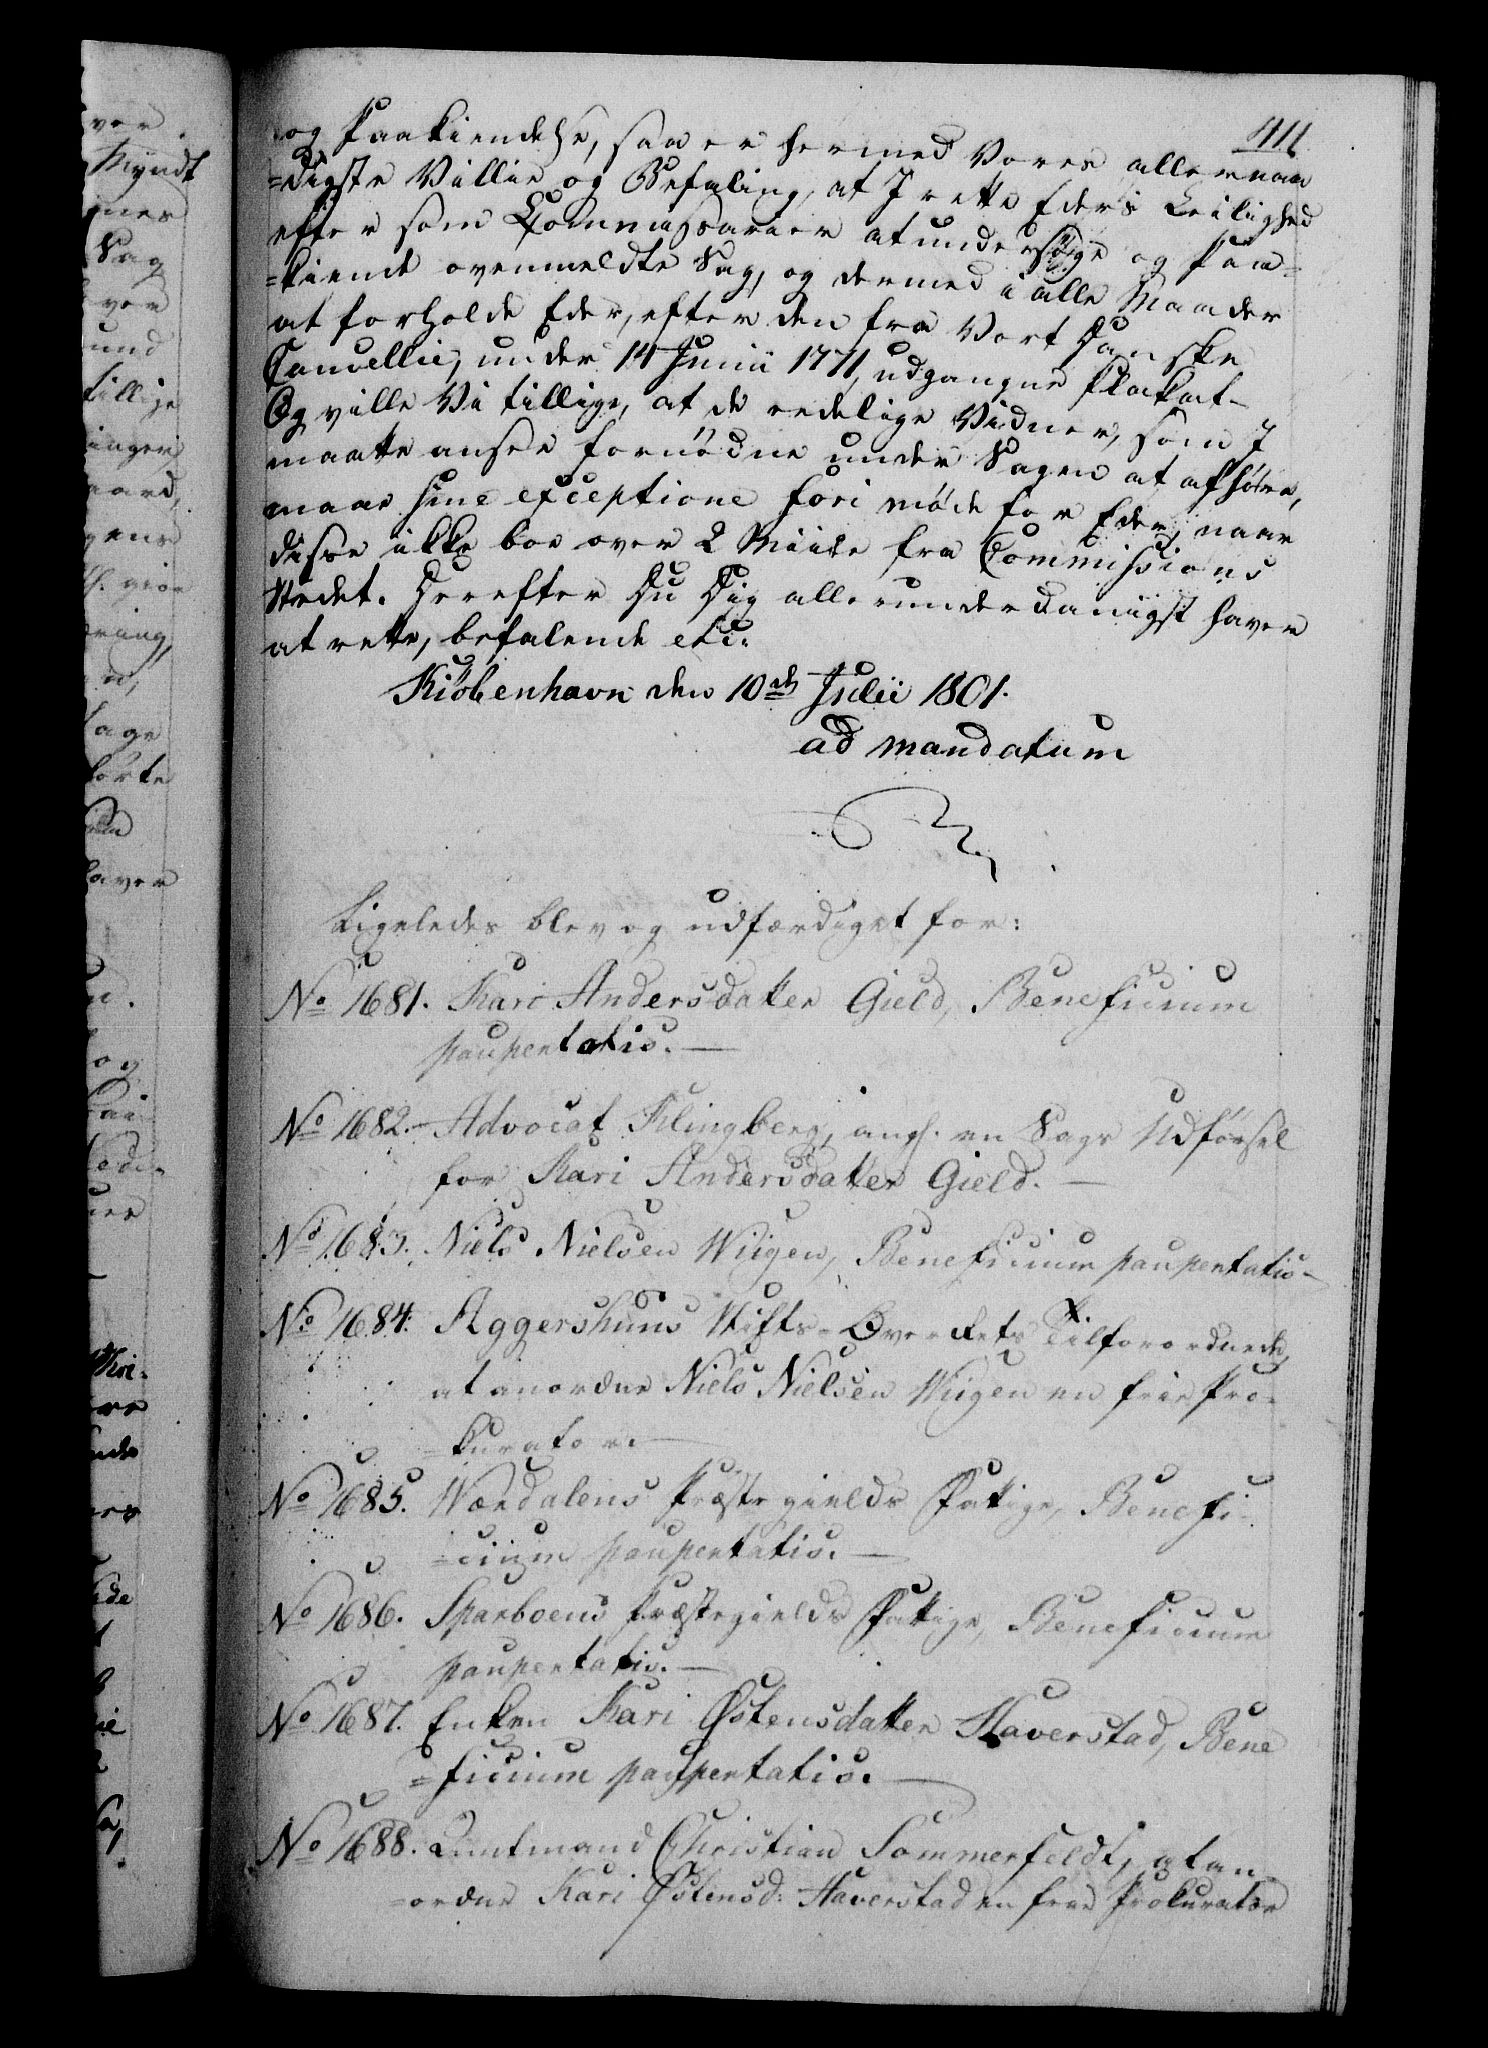 411
og Paakiendelse, saa er hermed Vores allernaa
=digste Villie og Befaling, at I rette Eders Leilighed
efter som Commissarier at undersøge og Paa=
=kiende ovenmeldte Sag, og dermed i alle Maader
at forholde Eder, efter den fra Vort Danske
Cancellie, under 14 Junii 1771, udgangne Plakat-
Og ville Vi tillige, at de redelige Vidner, som I
maatte ansee fornødne under Sagen at afhøre,
maae sine exceptione fori møde for Eder, naar
disse ikke boe over 2 Miile fra Commissions
Stedet. Derefter Du Dig allerunderdanigst haver
at rette, befalende etc:
Kiøbenhavn den 10de Julii 1801.
ad mandatum
Ligeledes blev og udfærdiget for:
No 1681. Kari Andersdatter Gield, Beneficium
paupertatis.—
No 1682.- Advocat Klingberg, angl. en Sags Udførsel
for Kari Andersdatter Gield.—
No 1683. Niels Nielsen Wiigen, Beneficium paupertatis-
No 1684. Aggershuus Stifts-Overrets Tilforordnede,
at anordne Niels Nielsen Wiigen en frie Pro-
=kurator.—
No 1685. Værdalens Præstegields Fattige, Benefi-
=cium paupertatis.—
No 1686. Sparboens Præstegields Fattige, Beneficium
paupertatis.—
No 1687. Enken Kari Østensdatter Haverstad, Bene
=ficium paupertatis.—
No 1688. Amtmand Christian Sommerfeldt, at an
=ordne Kari Østensd: Haverstad en frie Prokurator